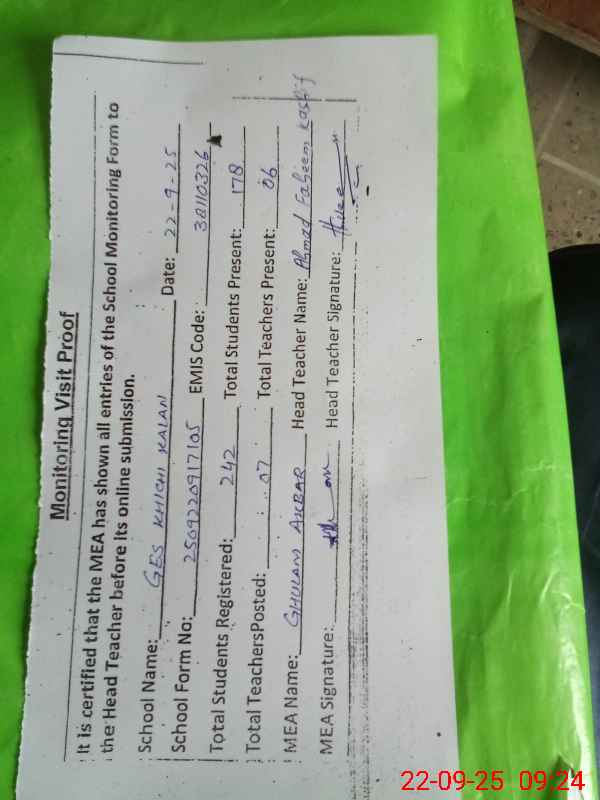 Monitoring Visit Proof
It is certified that the MEA has shown all entries of the School Monitoring Form to
the Head Teacher before its online submission.
School Name: GES KHICHI KALAN Date: 22-9-25
School Form No: 2509220917105 EMIS Code: 38110326
Total Students Registered: 242 Total Students Present: 178
Total TeachersPosted: 07 Total Teachers Present: 06
MEA Name: GHULAM AKBAR Head Teacher Name: Ahmad Faheem Kashif
MEA Signature: Head Teacher Signature:
22-09-25 09:24